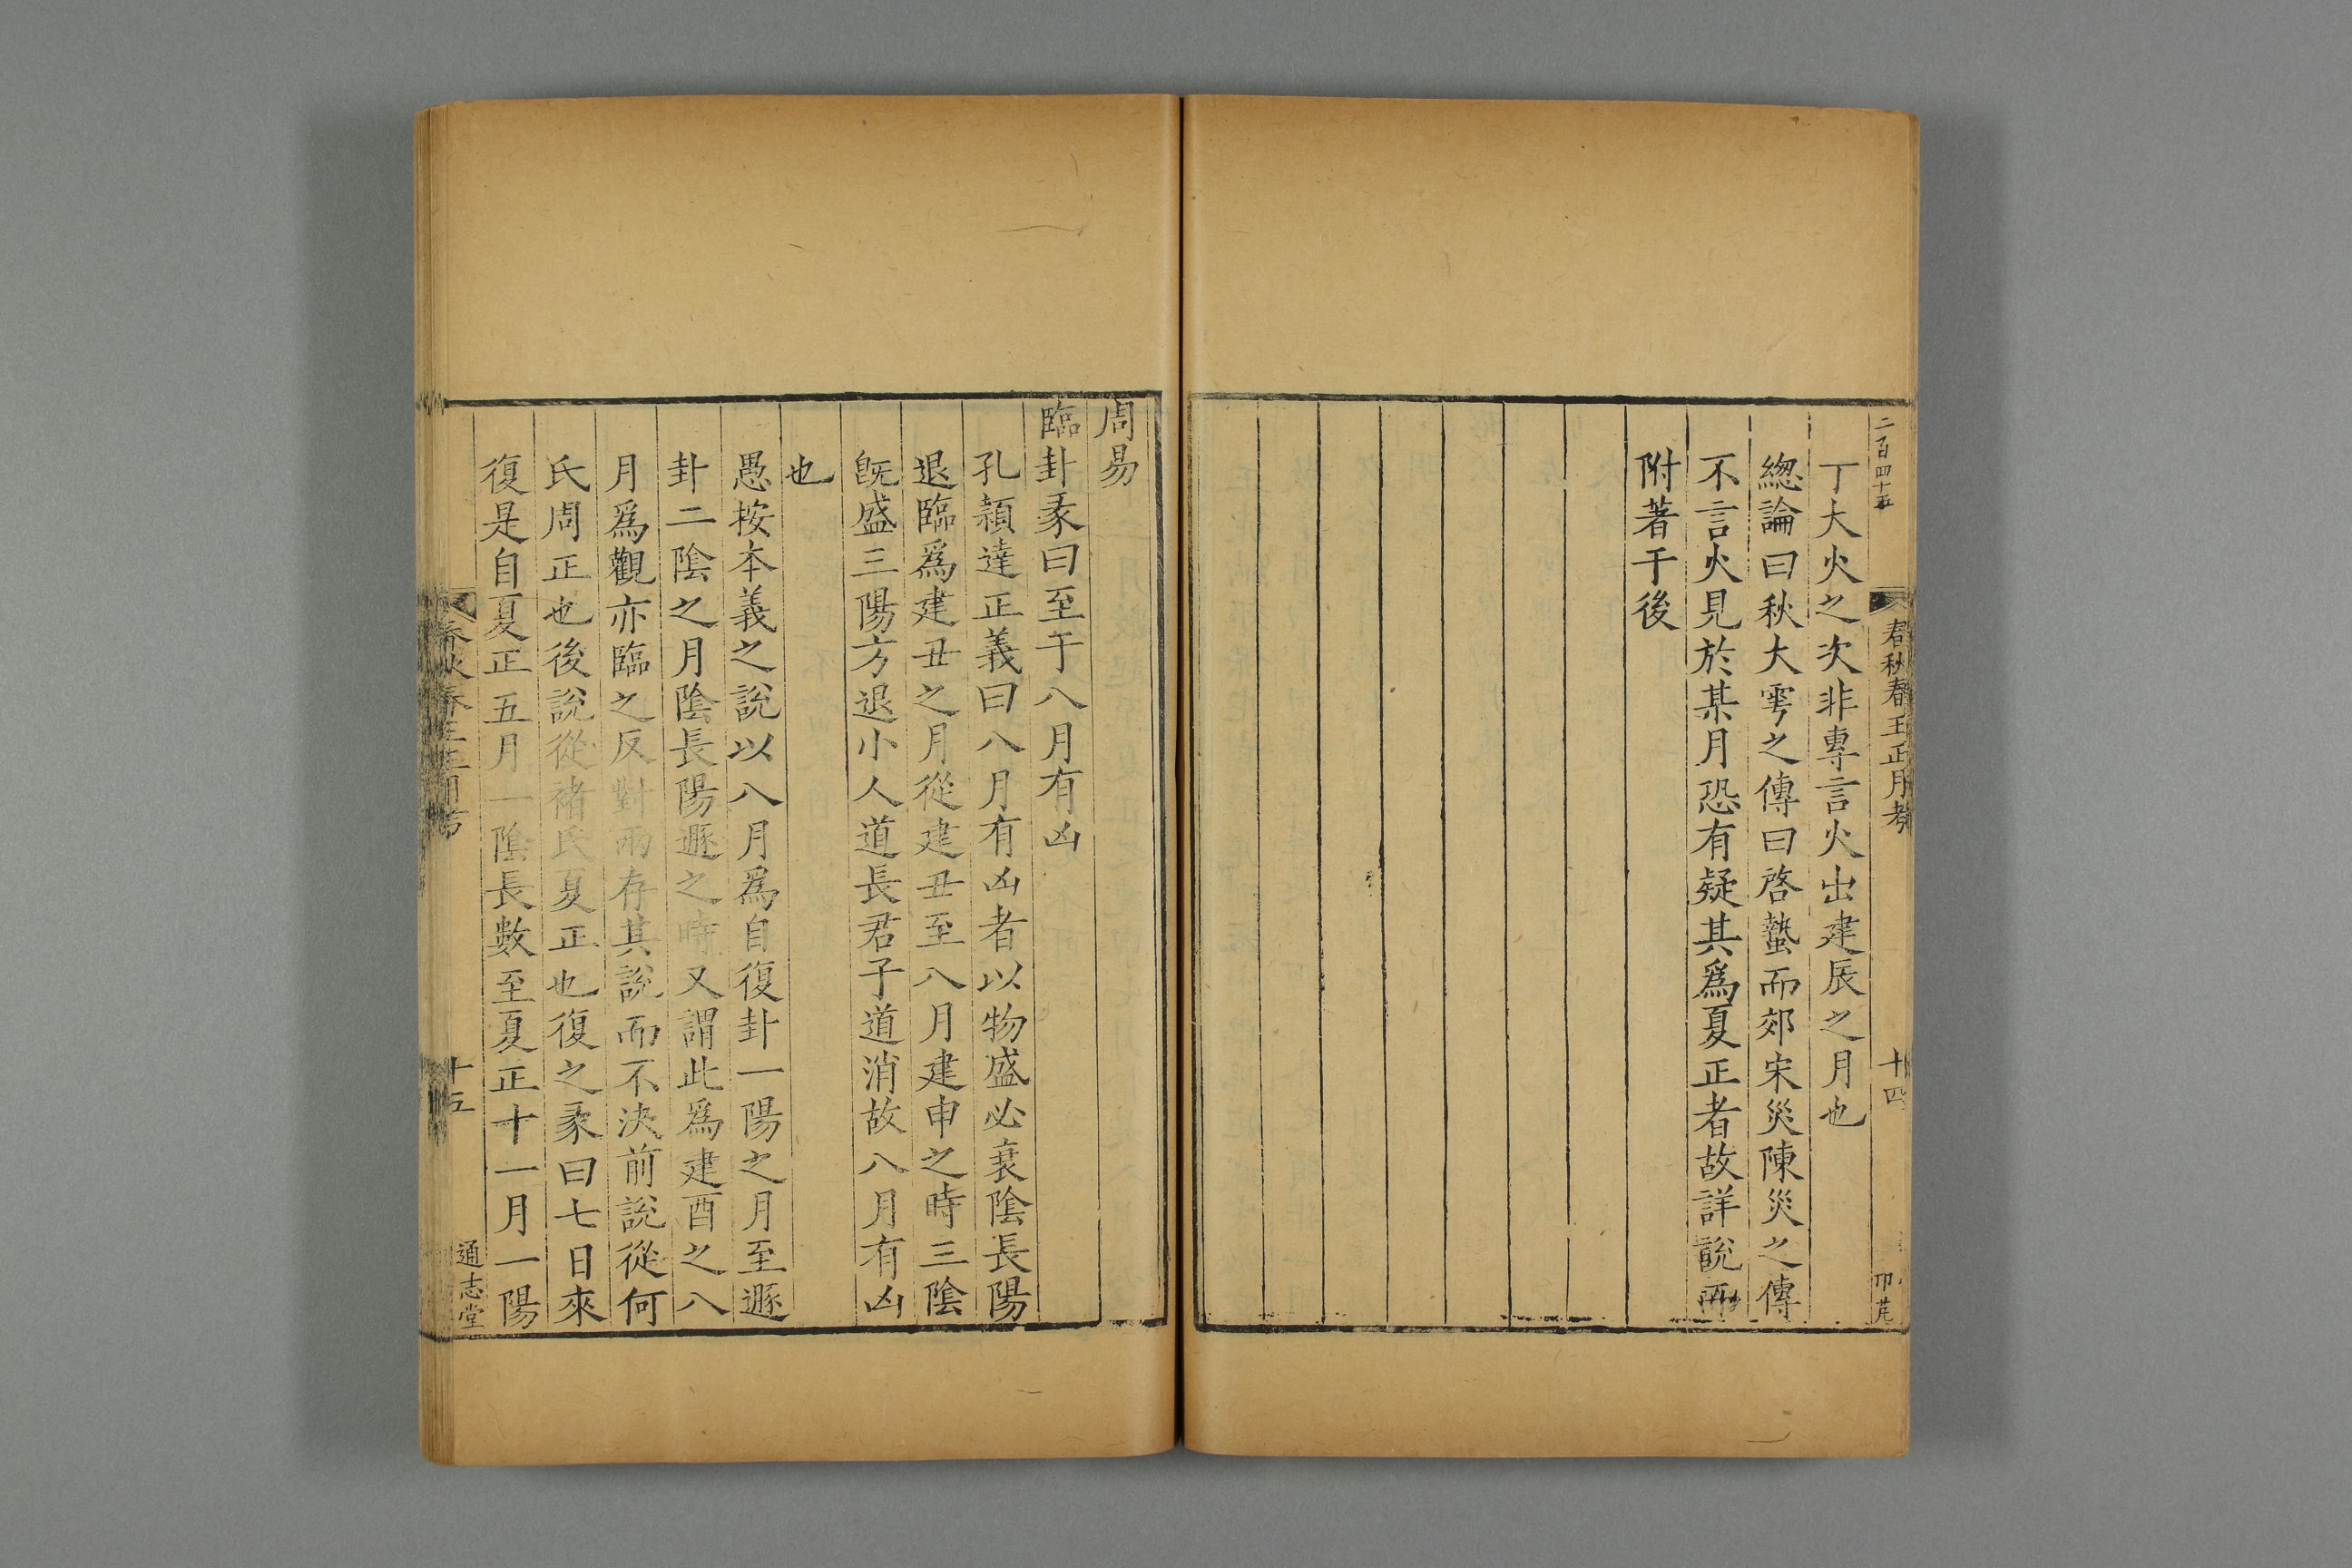 二百四十五
春秋春王正月考
十四
丁大火之次非專言火出建辰之月也
緫論曰秋大雩之傳曰啓蟄而郊宋災陳災之傳
不言火見於某月恐有疑其爲夏正者故詳說而
附著于後
周易
臨卦彖曰至于八月有凶
孔頴達正義曰八月有凶者以物盛必衰陰長陽
退臨爲建丑之月從建丑至八月建申之時三陰
旣盛三陽方退小人道長君子道消故八月有凶
也
愚按本義之說以八月爲自復卦一陽之月至遯
卦二陰之月陰長陽遯之時又謂此爲建酉之八
月爲觀亦臨之反對兩存其說而不決前說從何
氏周正也後說從褚氏夏正也復之彖曰七日來
復是自夏正五月一陰長數至夏正十一月一陽
春秋春王正月考
十五
通志堂